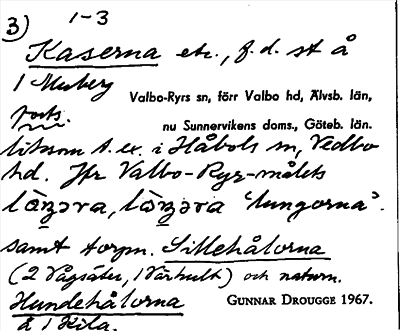 3) 1-3
Kaserna etc., f.d. st å
1 Muberg
Valbo-Ryrs sn, förr Valbo hd, Älvsb. län,
forts.
nu Sunnervikens doms., Göteb. län.
liksom t.ex. i Håbols sn, Vedbo
hd. Jfr Valbo-Ryr-målets
'lungorna'.
samt torpn. Sillehålorna
(2 Vågsäter, 1 Värhult) och naturn.
Hundehålorna
GUNNAR DROUGGE 1967.
å 1 Kila.